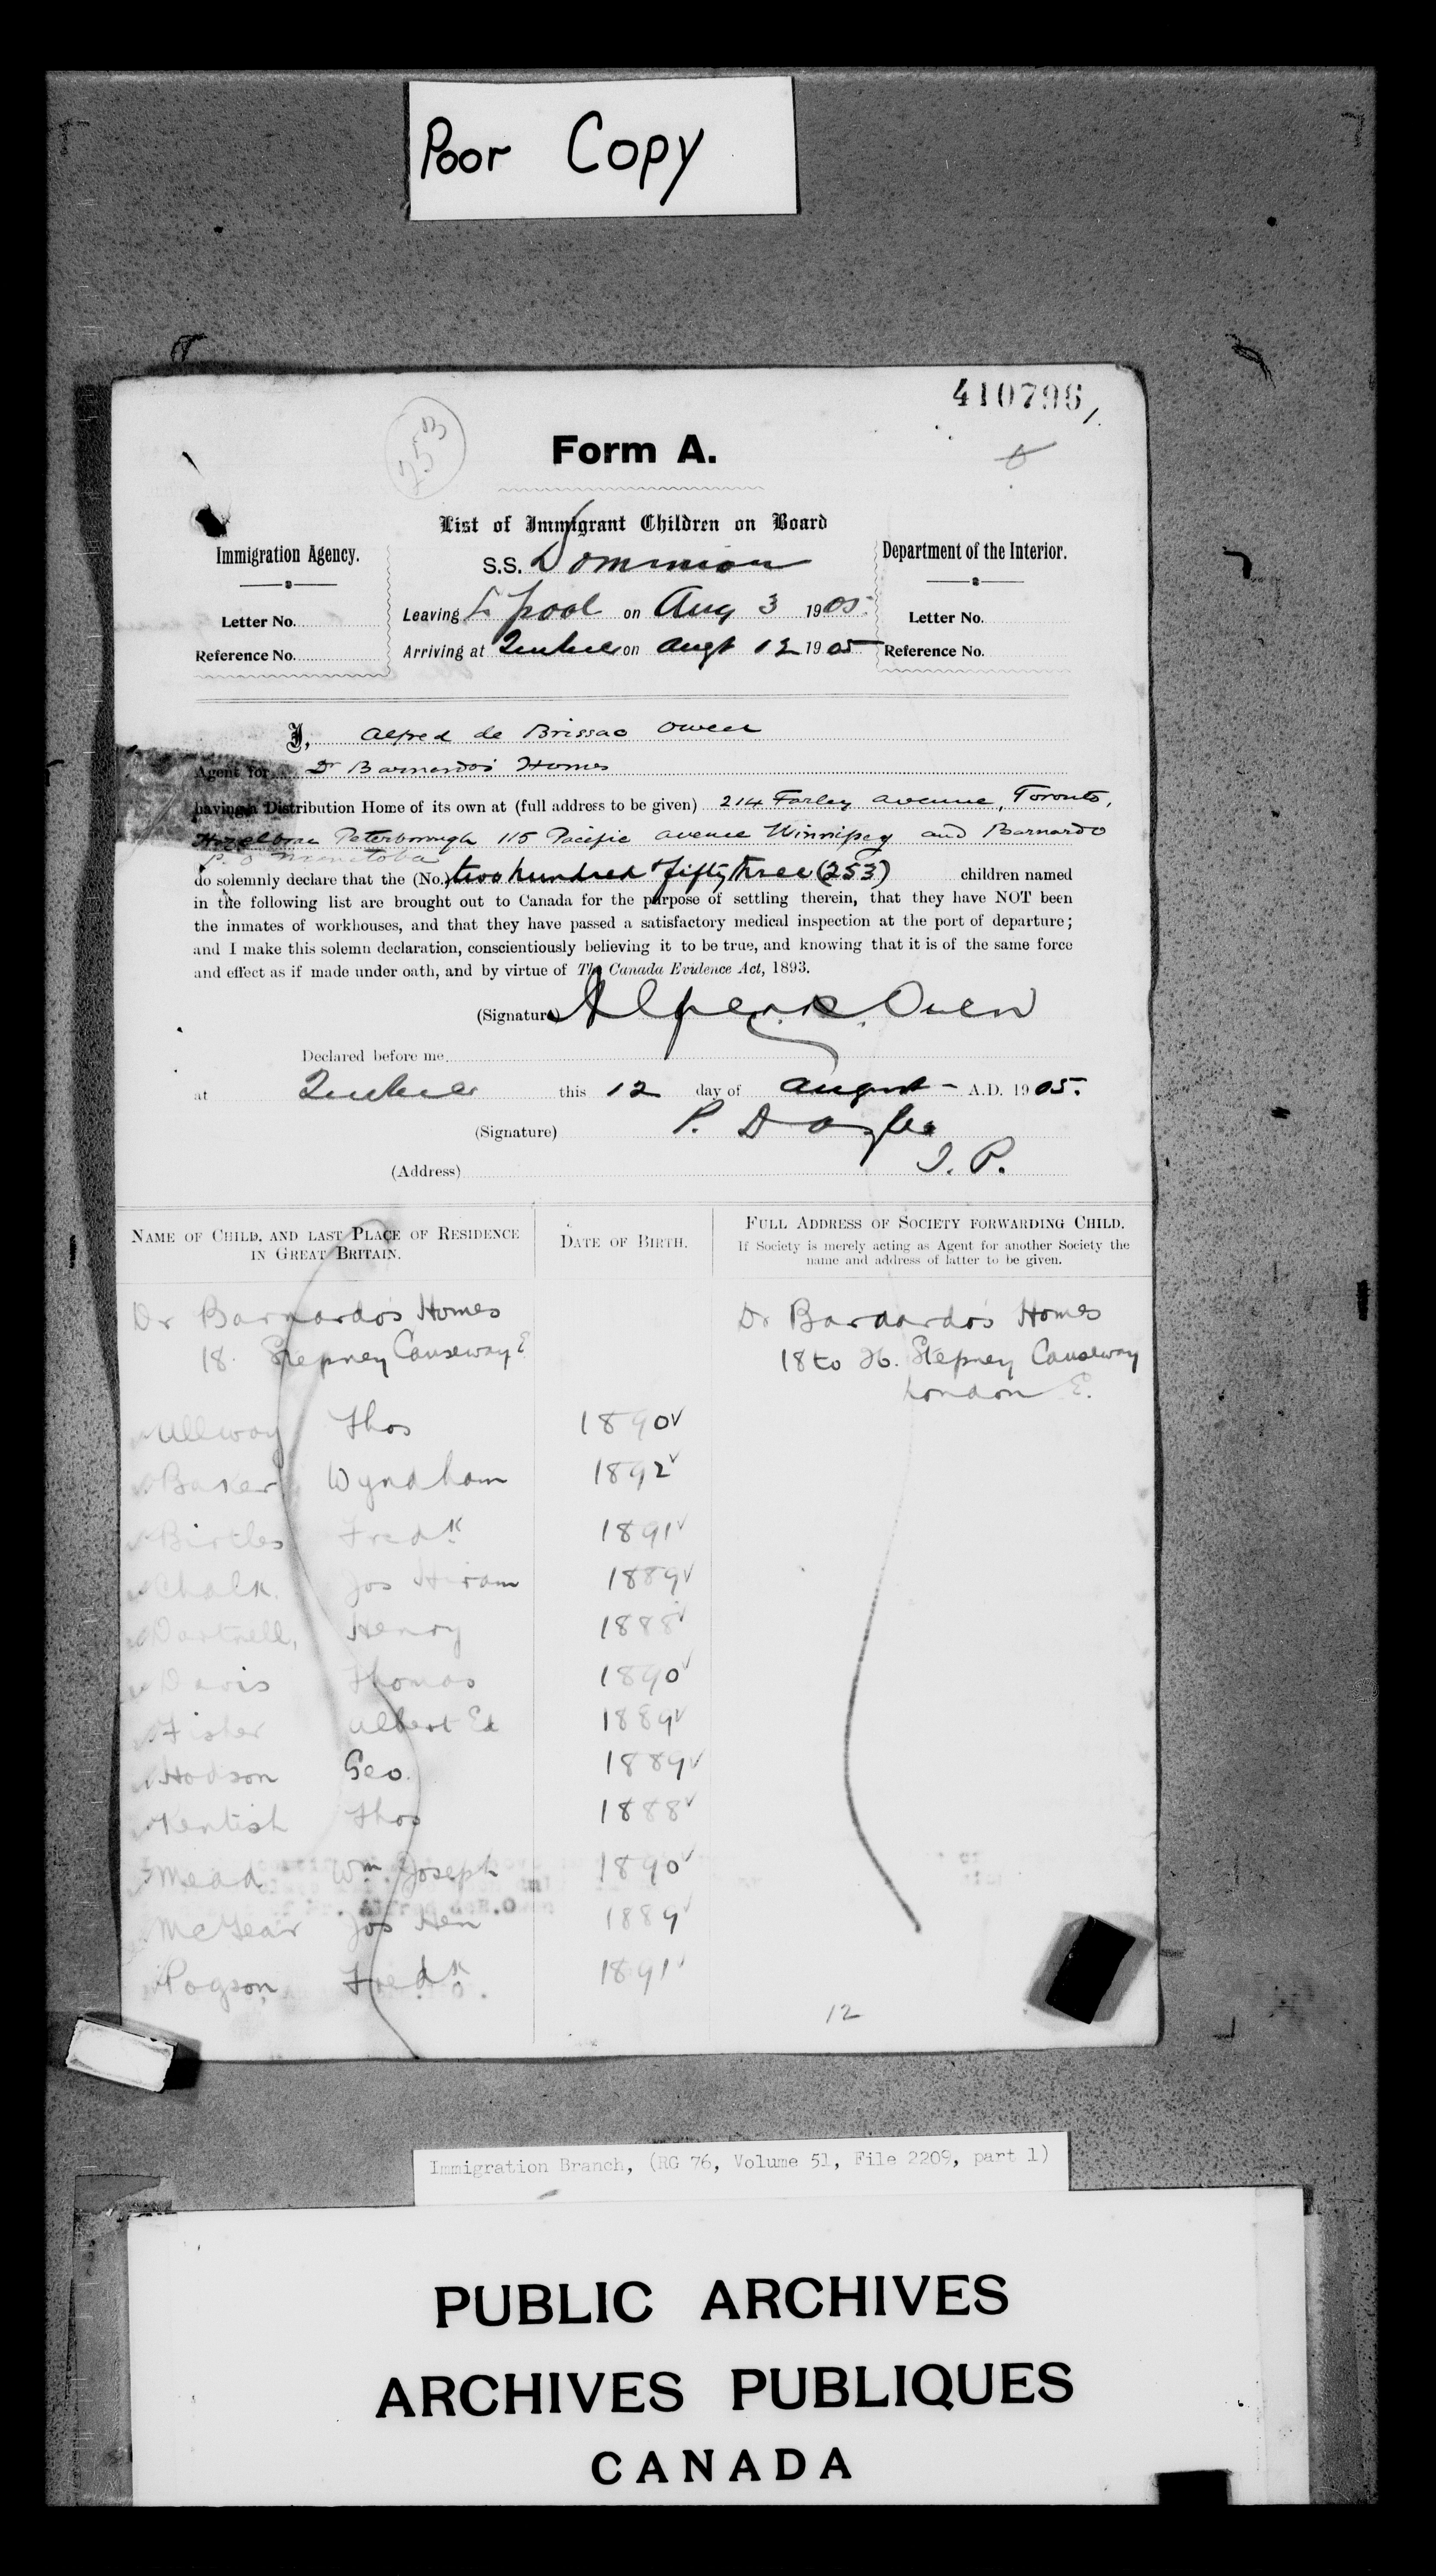 Poor Copy
410796
253
Form A.
List of Immigrant Children on Board
Immigration Agency.
S.S. Dominion
Department of the Interior.
Letter No.
Leaving L'pool on Aug 3 1905.
Letter No.
Reference No.
Arriving at Quebec on Augt 12 1905
Reference No.
I, Alfred de Brissac Owen
Agent for Dr Barnardos Homes
having a Distribution Home of its own at (full address to be given) 214 Farley avenue, Toronto,
Hazelbrae Peterborough 115 Pacific avenue Winnipeg and Barnardo
P. O Manitoba
do solemnly declare that the (No.) two hundred & fifty three (253) children named
in the following list are brought out to Canada for the purpose of settling therein, that they have NOT been
the inmates of workhouses, and that they have passed a satisfactory medical inspection at the port of departure;
and I make this solemn declaration, conscientiously believing it to be true, and knowing that it is of the same force
and effect as if made under oath, and by virtue of The Canada Evidence Act, 1893.
(Signature) Owen
Declared before me
at Quebec this 12 day of August - A.D. 1905.
(Signature) P. Doyle
J. P.
(Address)
NAME OF CHILD, AND LAST PLACE OF RESIDENCE
IN GREAT BRITAIN.
DATE OF BIRTH.
FULL ADDRESS OF SOCIETY FORWARDING CHILD.
If Society is merely acting as Agent for another Society the
name and address of latter to be given.
Dr Barnardo's Homes
18. Stepney Causeway E
Dr Barnardo's Homes
18 to 26. Stepney Causeway
London E.
Ullway Thos 1890
Baker Wyndham 1892
Birtles Fredk 1891
Chalk Jos Hiram 1889
Dartnell, Henry 1888
Davis Thomas 1890
Fisher Albert Ed 1889
Hodson Geo. 1889
Kentish Thos 1888
Mead Wm Joseph 1890
McGear Jos Hen 1889
Pogson Fredk 1891
12
Immigration Branch, (RG 76, Volume 51, File 2209, part 1)
PUBLIC ARCHIVES
ARCHIVES PUBLIQUES
CANADA